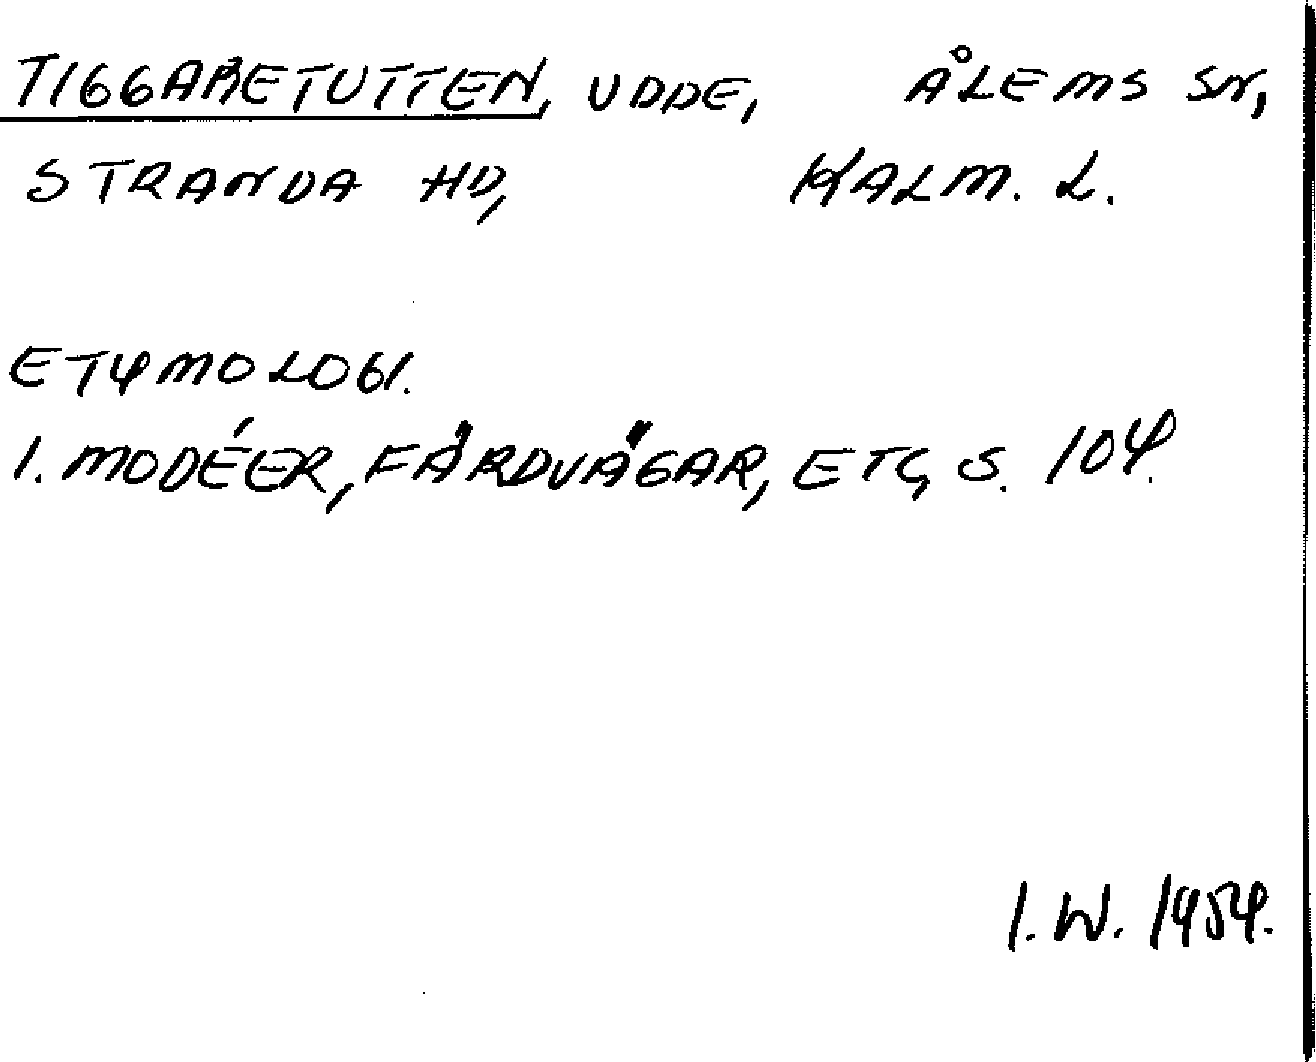 TIGGARETUTTEN, UDDE, ÅLEMS SN,
STRANDA HD, KALM. L.
ETYMOLOGI.
I. MODÉER, FÄRDVÄGAR, ETC, S. 104.
I. W. 1954.